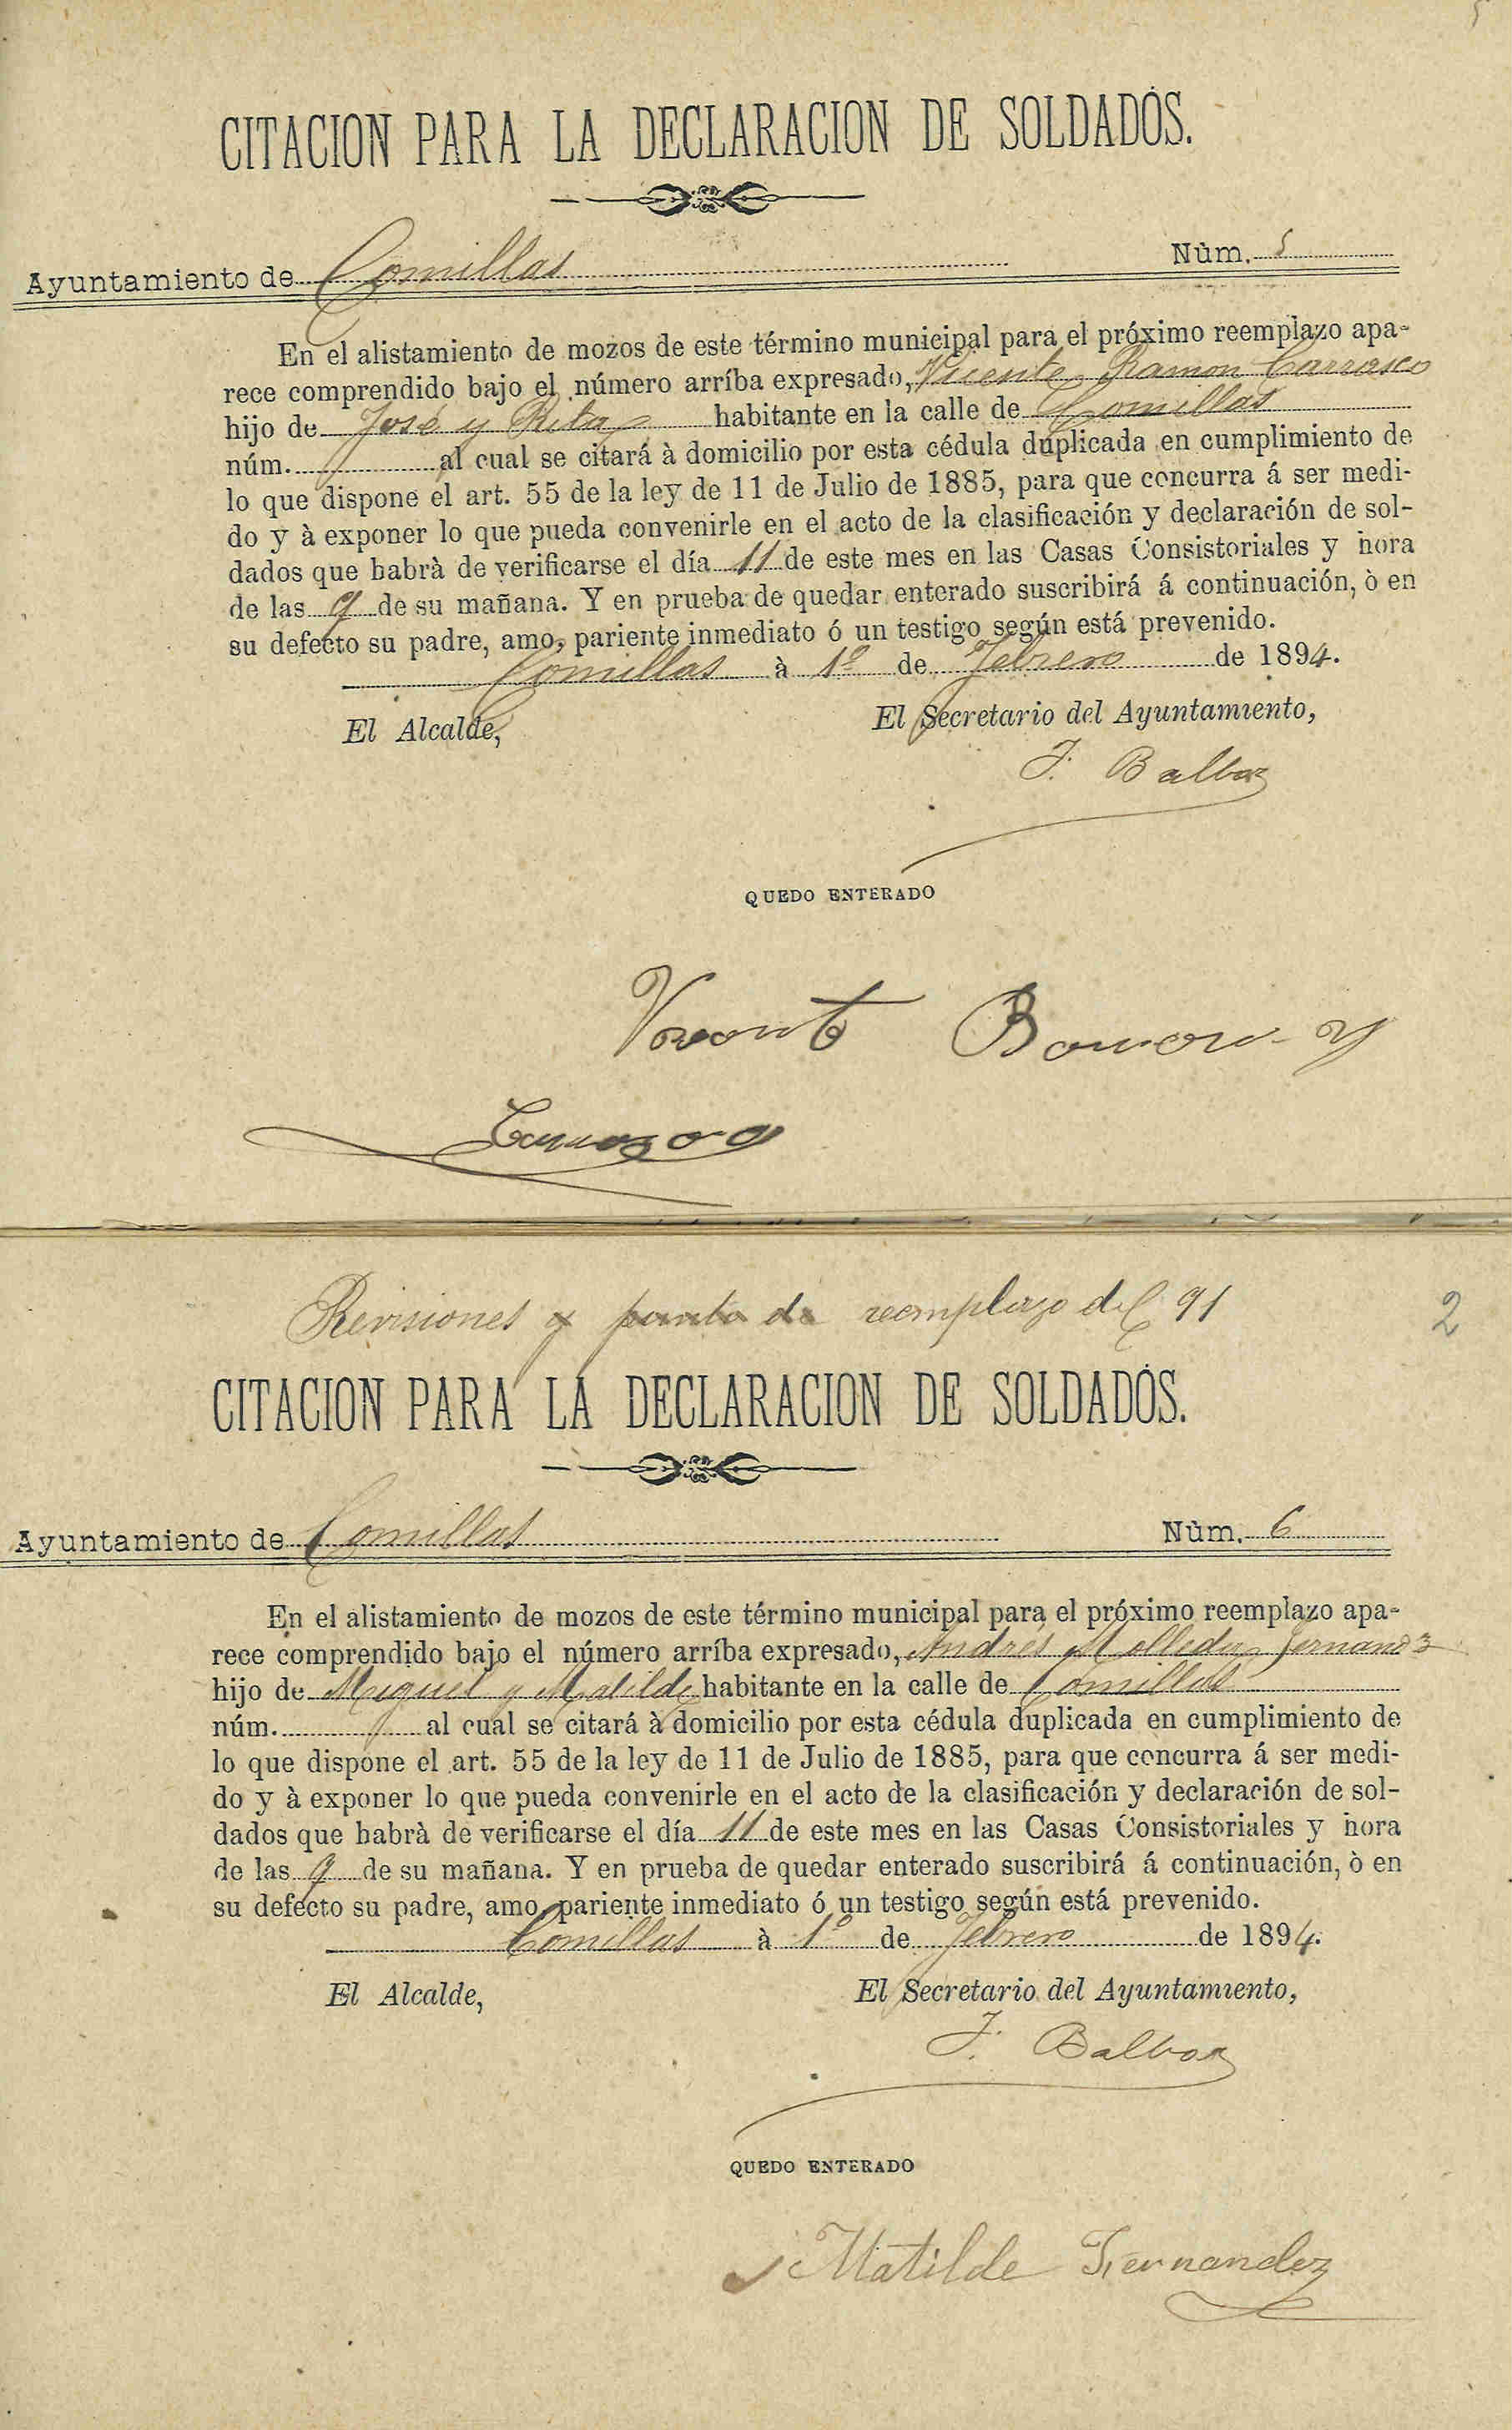 5
CITACION PARA LA DECLARACION DE SOLDADOS.
Ayuntamiento de Comillas Nùm. 5
En el alistamiento de mozos de este término municipal para el próximo reemplazo apa-
rece comprendido bajo el número arríba expresado, Vicente Ramon Carrasco
hijo de José y Rita habitante en la calle de Comillas
núm. al cual se citará à domicilio por esta cédula duplicada en cumplimiento de
lo que dispone el art. 55 de la ley de 11 de Julio de 1885, para que concurra á ser medi-
do y à exponer lo que pueda convenirle en el acto de la clasificación y declaración de sol-
dados que habrà de verificarse el día 11 de este mes en las Casas Consistoriales y hora
de las 9 de su mañana. Y en prueba de quedar enterado suscribirá á continuación, ò en
su defecto su padre, amo, pariente inmediato ó un testigo según está prevenido.
Comillas à 1º de Febrero de 1894.
El Alcalde, El Secretario del Ayuntamiento,
F. Balboa
QUEDO ENTERADO
Revisiones y reemplazo del 91
2
CITACION PARA LA DECLARACION DE SOLDADOS.
Ayuntamiento de Comillas Nùm. 6
En el alistamiento de mozos de este término municipal para el próximo reemplazo apa-
rece comprendido bajo el número arríba expresado, Andrés Molleda Fernandz
hijo de Miguel y Matilde habitante en la calle de Comillas
núm. al cual se citará à domicilio por esta cédula duplicada en cumplimiento de
lo que dispone el art. 55 de la ley de 11 de Julio de 1885, para que concurra á ser medi-
do y à exponer lo que pueda convenirle en el acto de la clasificación y declaración de sol-
dados que habrà de verificarse el día 11 de este mes en las Casas Consistoriales y hora
de las 9 de su mañana. Y en prueba de quedar enterado suscribirá á continuación, ò en
su defecto su padre, amo, pariente inmediato ó un testigo según está prevenido.
Comillas à 1º de Febrero de 1894.
El Alcalde, El Secretario del Ayuntamiento,
F. Balboa
QUEDO ENTERADO
Matilde Fernandez